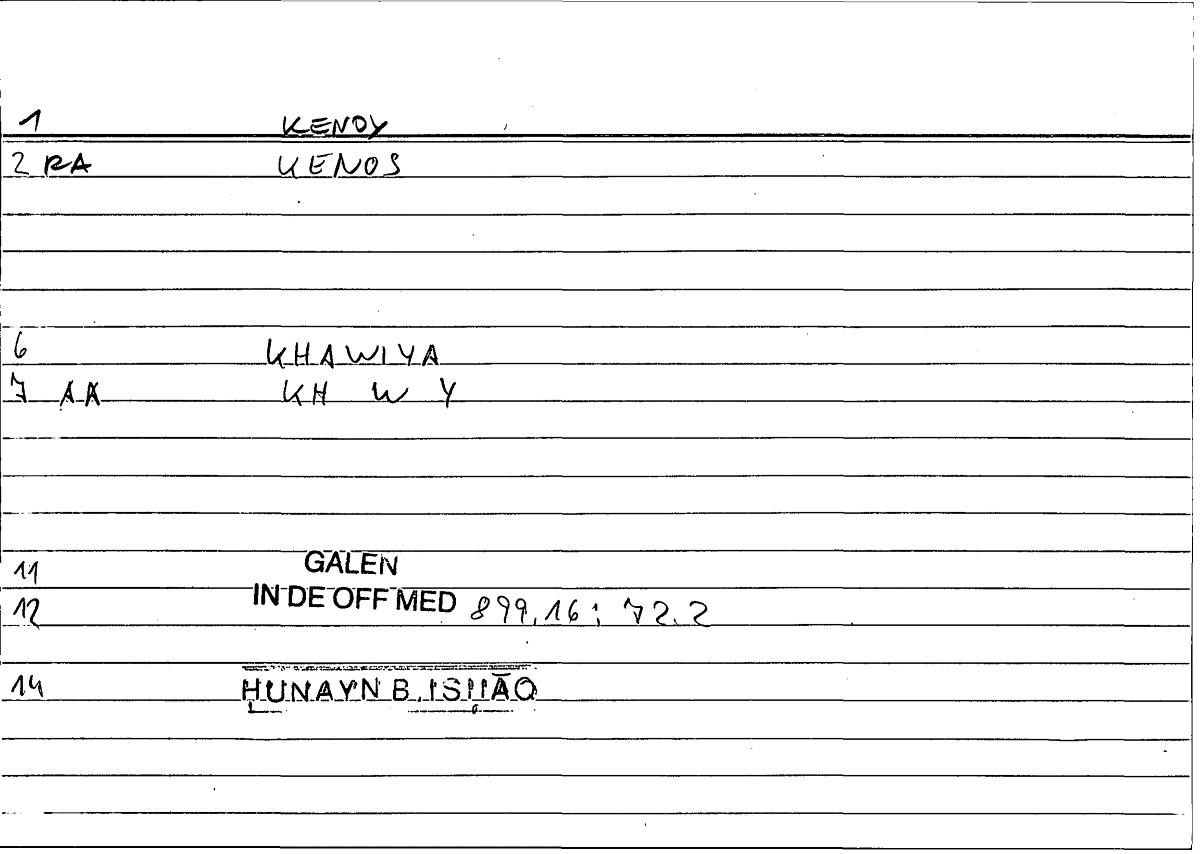 1 KENOY
2 RA KENOS
6 KHAWIYA
7 AA KH W Y
11 GALEN
12 IN DE OFF MED 899,16: 72.2
14 HUNAYN B. ISHĀQ